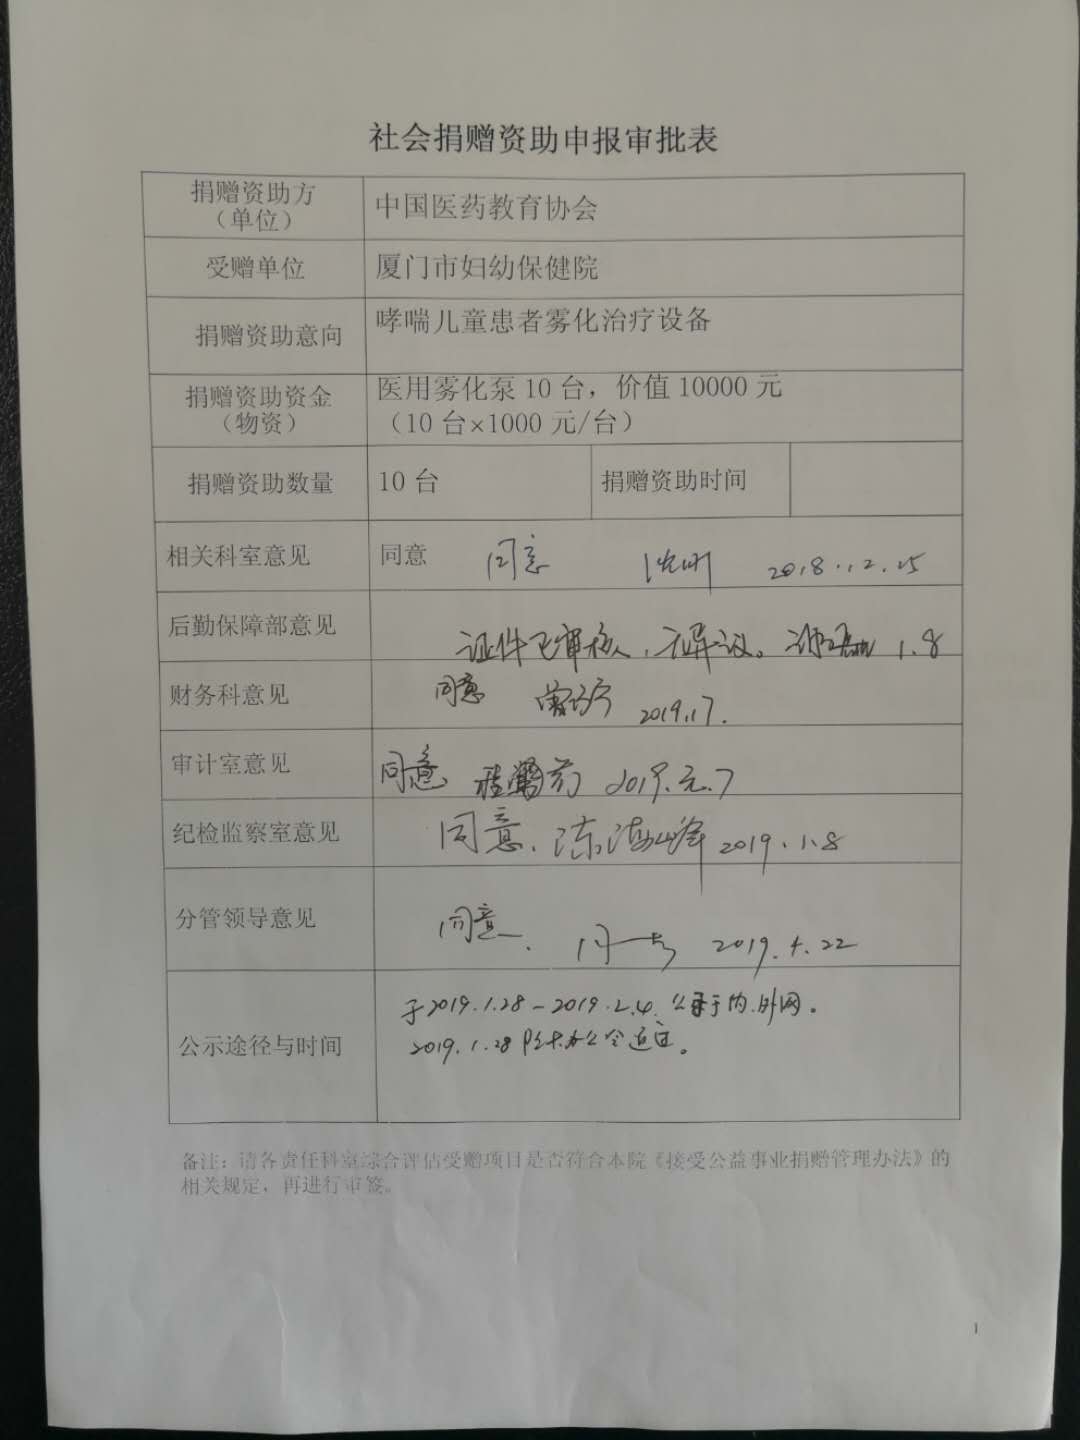 社会捐赠资助申报审批表
捐赠资助方
（单位）
中国医药教育协会
受赠单位
厦门市妇幼保健院
捐赠资助意向
哮喘儿童患者雾化治疗设备
捐赠资助资金
（物资）
医用雾化泵 10 台，价值 10000 元
（10 台×1000 元/台）
捐赠资助数量
10 台
捐赠资助时间
相关科室意见
同意 同意 2018.12.25
后勤保障部意见
证件已审核，无异议。 1.8
财务科意见
同意 2019.1.7.
审计室意见
同意 2019.元.7
纪检监察室意见
同意. 陈海峰 2019.1.8
分管领导意见
同意. 2019.4.22
公示途径与时间
于2019.1.28-2019.2.4. 公示于内.外网。
2019.1.28 院长办公会通过。
备注：请各责任科室综合评估受赠项目是否符合本院《接受公益事业捐赠管理办法》的
相关规定，再进行审签。
1